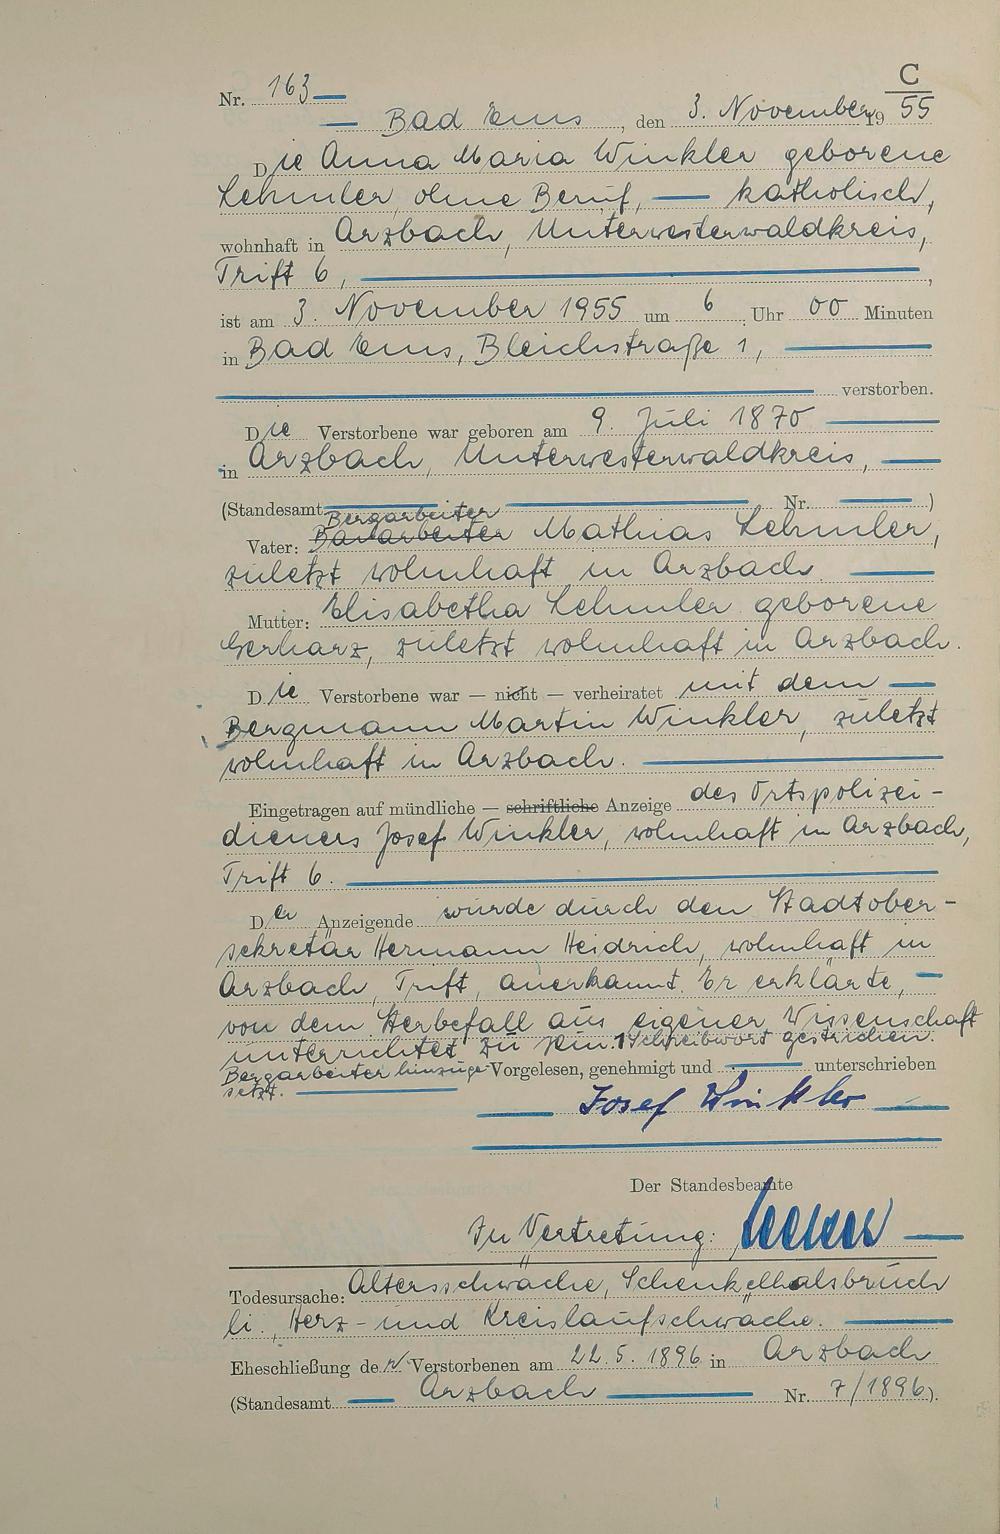 C
Nr. 163
Bad Ems, den 3. November 1955
Die Anna Maria Winkler geborene
Lehmler, ohne Beruf, — katholisch,
wohnhaft in Arzbach, Unterwesterwaldkreis,
Trift 6,
ist am 3. November 1955 um 6 Uhr 00 Minuten
in Bad Ems, Bleichstraße 1,
verstorben.
Die Verstorbene war geboren am 9. Juli 1870
in Arzbach, Unterwesterwaldkreis,
(Standesamt Nr. )
Bergarbeiter
Vater: Bauarbeiter Mathias Lehmler,
zuletzt wohnhaft in Arzbach.
Mutter: Elisabetha Lehmler geborene
Gerharz, zuletzt wohnhaft in Arzbach.
Die Verstorbene war — nicht — verheiratet mit dem
Bergmann Martin Winkler, zuletzt
wohnhaft in Arzbach.
Eingetragen auf mündliche — schriftliche Anzeige des Ortspolizei-
dieners Josef Winkler, wohnhaft in Arzbach,
Trift 6.
Der Anzeigende wurde durch den Stadtober-
sekretär Hermann Heidrich, wohnhaft in
Arzbach, Trift, anerkannt. Er erklärte,
von dem Sterbefall aus eigener Wissenschaft
unterrichtet zu sein. 1 Schreibwort gestrichen.
Bergarbeiter hinzuge- Vorgelesen, genehmigt und unterschrieben
setzt.
Josef Winkler
Der Standesbeamte
In Vertretung:
Todesursache: Altersschwäche, Schenkelhalsbruch
li., Herz- und Kreislaufschwäche.
Eheschließung der Verstorbenen am 22.5.1896 in Arzbach
(Standesamt Arzbach Nr. 7/1896).